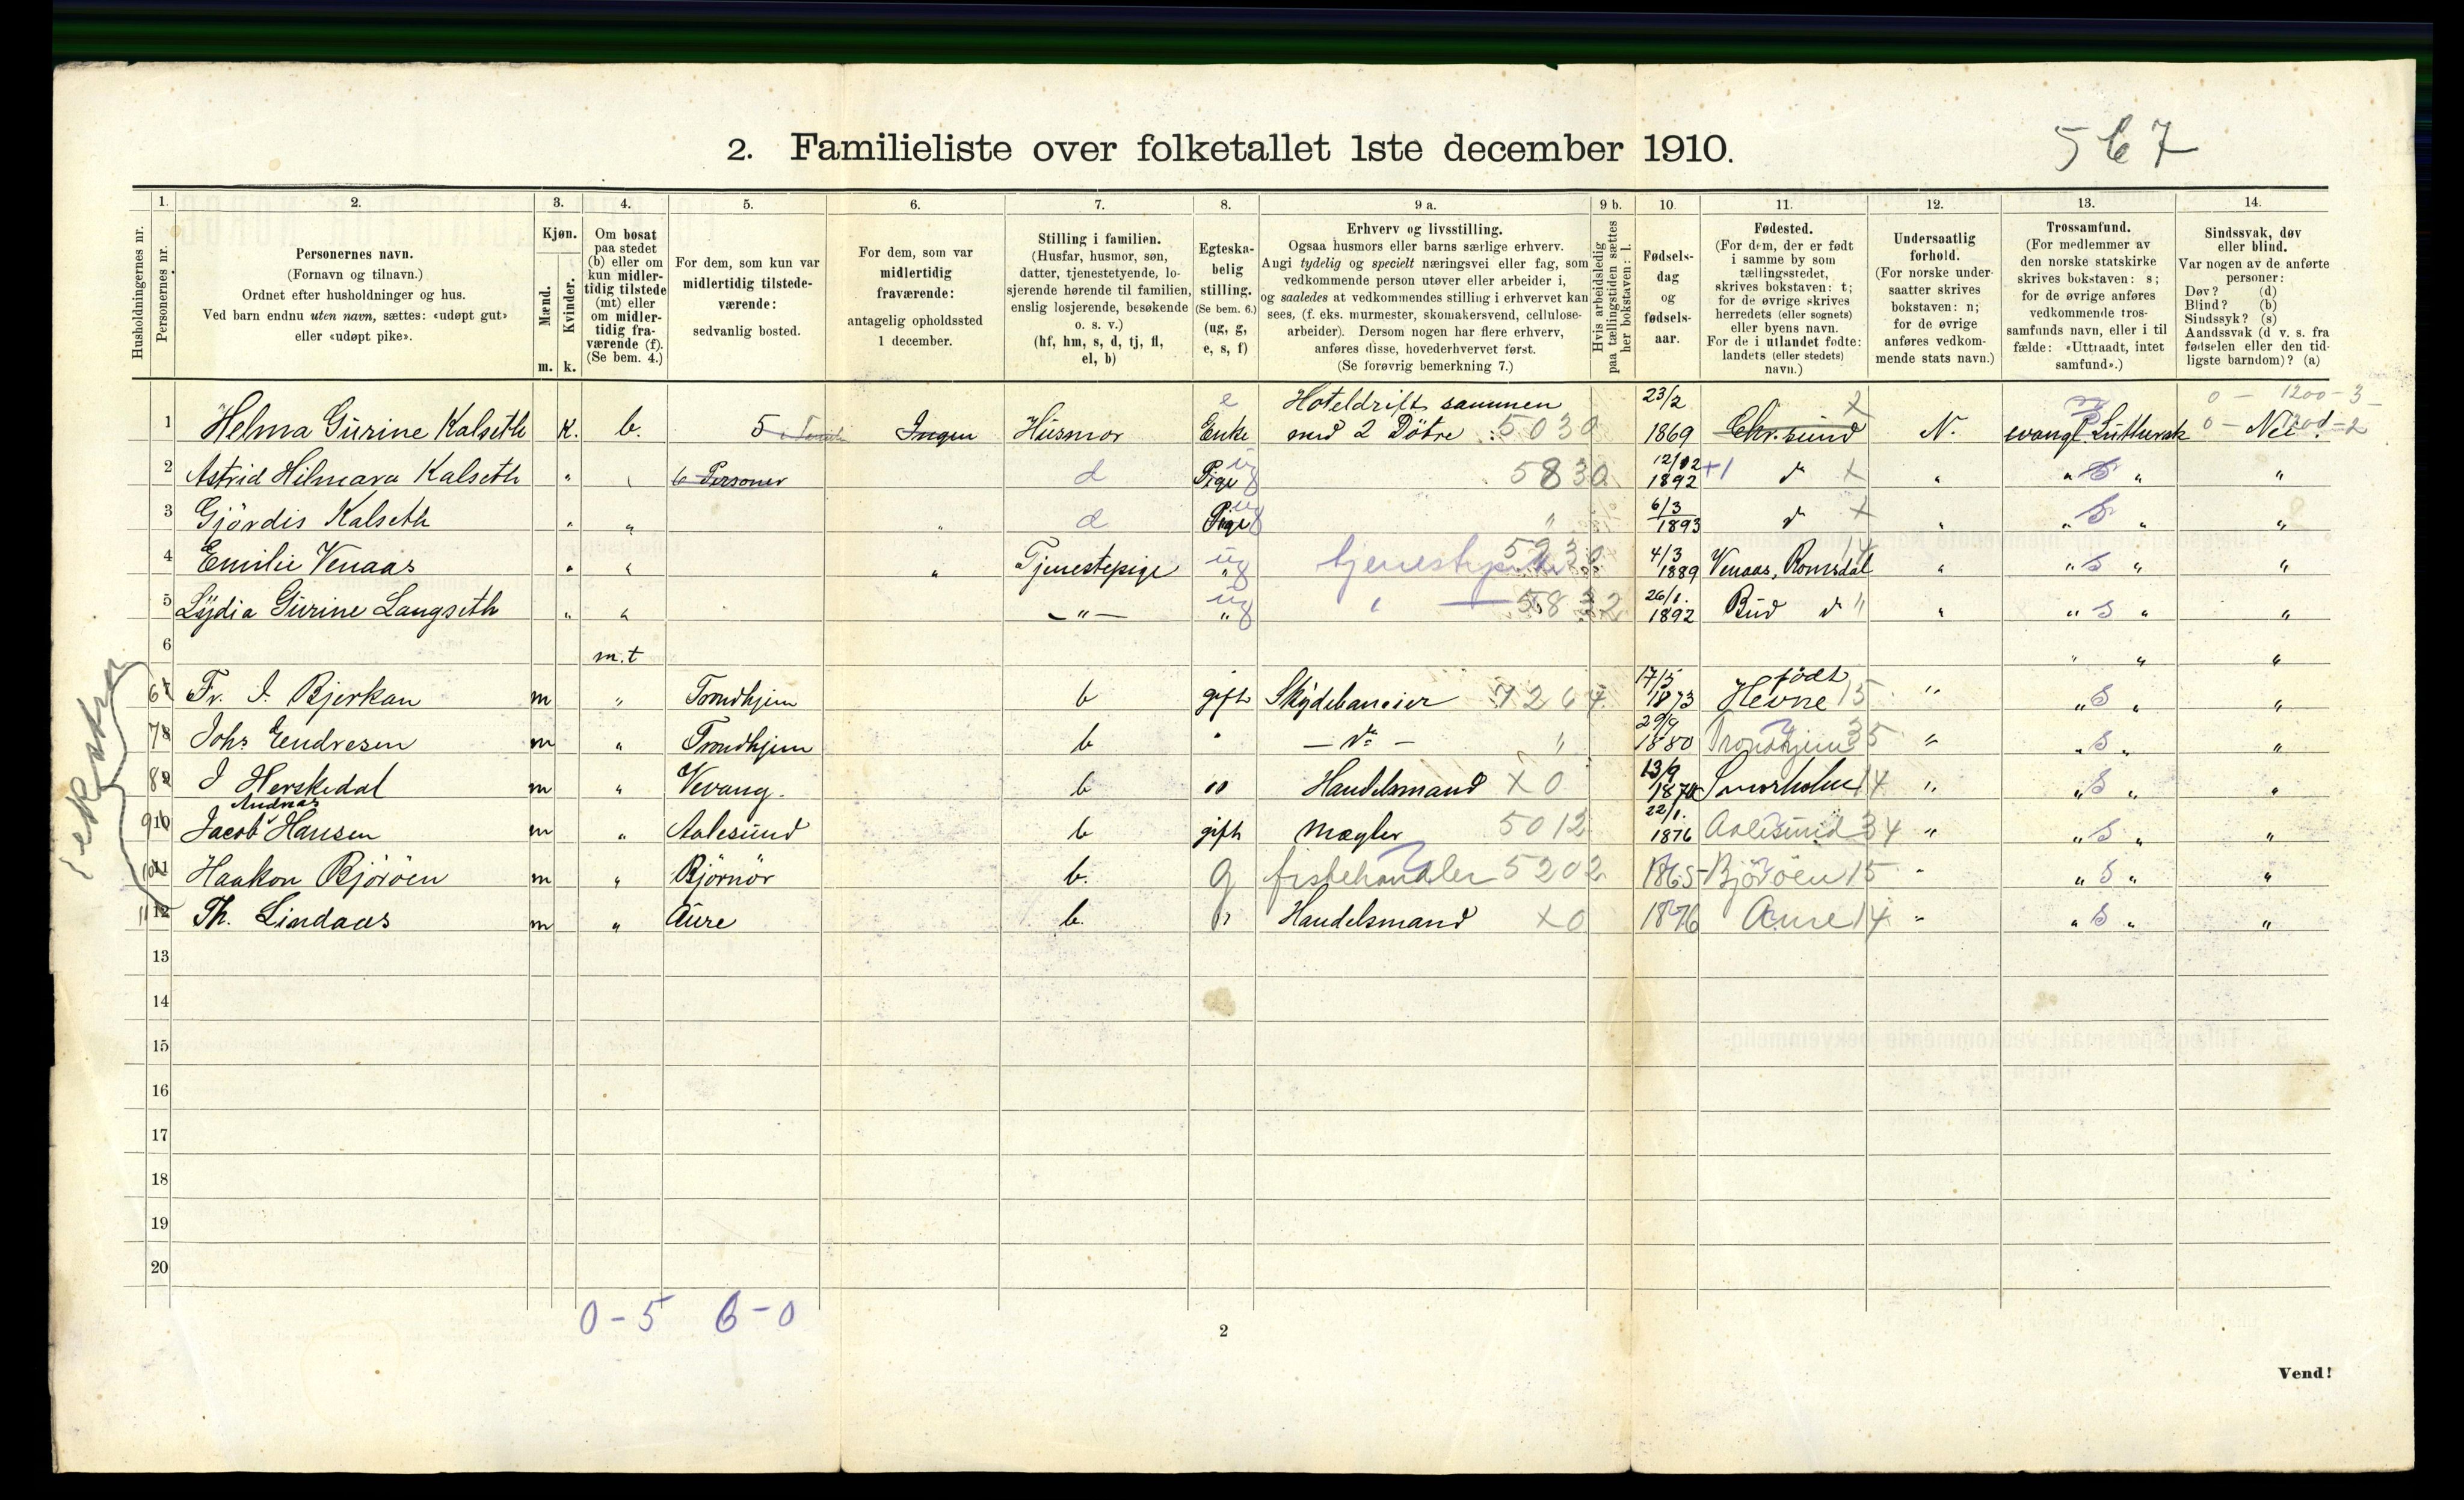 2. Familieliste over folketallet 1ste december 1910.
567
1. 2. 3. 4. 5. 6. 7. 8. 9 a. 9 b. 10. 11. 12. 13. 14.
Husholdningernes nr.
Personernes nr.
Personernes navn.
(Fornavn og tilnavn.)
Ordnet efter husholdninger og hus.
Ved barn endnu uten navn, sættes: «udøpt gut»
eller «udøpt pike».
Kjøn.
Mænd.
Kvinder.
m. k.
Om bosat
paa stedet
(b) eller om
kun midler-
tidig tilstede
(mt) eller
om midler-
tidig fra-
værende (f).
(Se bem. 4.)
For dem, som kun var
midlertidig tilstede-
værende:
sedvanlig bosted.
For dem, som var
midlertidig
fraværende:
antagelig opholdssted
1 december.
Stilling i familien.
(Husfar, husmor, søn,
datter, tjenestetyende, lo-
sjerende hørende til familien,
enslig losjerende, besøkende
o. s. v.)
(hf, hm, s, d, tj, fl,
el, b)
Egteska-
belig
stilling.
(Se bem. 6.)
(ug, g,
e, s, f)
Erhverv og livsstilling.
Ogsaa husmors eller barns særlige erhverv.
Angi tydelig og specielt næringsvei eller fag, som
vedkommende person utøver eller arbeider i,
og saaledes at vedkommendes stilling i erhvervet kan
sees, (f. eks. murmester, skomakersvend, cellulose-
arbeider). Dersom nogen har flere erhverv,
anføres disse, hovederhvervet først.
(Se forøvrig bemerkning 7.)
Hvis arbeidsledig
paa tællingstiden sættes
her bokstaven: l.
Fødsels-
dag
og
fødsels-
aar.
Fødested.
(For dem, der er født
i samme by som
tællingsstedet,
skrives bokstaven: t;
for de øvrige skrives
herredets (eller sognets)
eller byens navn.
For de i utlandet fødte:
landets (eller stedets)
navn.)
Undersaatlig
forhold.
(For norske under-
saatter skrives
bokstaven: n;
for de øvrige
anføres vedkom-
mende stats navn.)
Trossamfund.
(For medlemmer av
den norske statskirke
skrives bokstaven: s;
for de øvrige anføres
vedkommende tros-
samfunds navn, eller i til
fælde: «Uttraadt, intet
samfund».)
Sindssvak, døv
eller blind.
Var nogen av de anførte
personer:
Døv? (d)
Blind? (b)
Sindssyk? (s)
Aandssvak (d v. s. fra
fødselen eller den tid-
ligste barndom)? (a)
0 - 1200-3
e Hoteldrift sammen 23/2
1 Helma Gurine Kalseth K. b. 5 Ingen Husmor Enke med 2 Døtre 5030 1869 Chr.sund N. evangl Luthersk Nei
2 Astrid Hilmara Kalseth " " 6 Personer d Pige ug 5830 12/02 1892 +1 do x " " S " "
3 Gjördis Kalseth " " " d Pige ug " 6/3 1893 do x " " S " "
4 Emilie Venaas " " " Tjenestepige ug 4/3 1889 Venaas, Romsdal " " S " "
5 Lydia Gurine Langseth " " - " - ug " 26/1. 1892 Bud do " " " S " "
6 m.t " " "
6 7 Fr. I. Bjerkan m " Trondhjem b gift Skydebaneier 17/5 1873 født Hevne 15 " " S " "
7 8 Johs Endresen m " Trondhjem b " - do - " 29/9 1880 Trondhjem 35 " " S " "
8 9 J Herskedal m " Vevang. b " Handelsmand X0 13/9 Smorholm 14 " " S " "
9 10 Jacob Andreas Hansen m " Aalesund b gift Mægler 5012 22/1. 1876 Aalesund 34 " " S " "
10 11 Haakon Björöen m " Björnör b. g fiskehandler 5202 1865 Björöen 15 " " S " "
11 12 Th. Lindaas m " Aure b. " Handelsmand X0 1876 Aure 14 " " S " "
13
14
15
16
17
18
19
20
0-5 6-0
2
Vend!